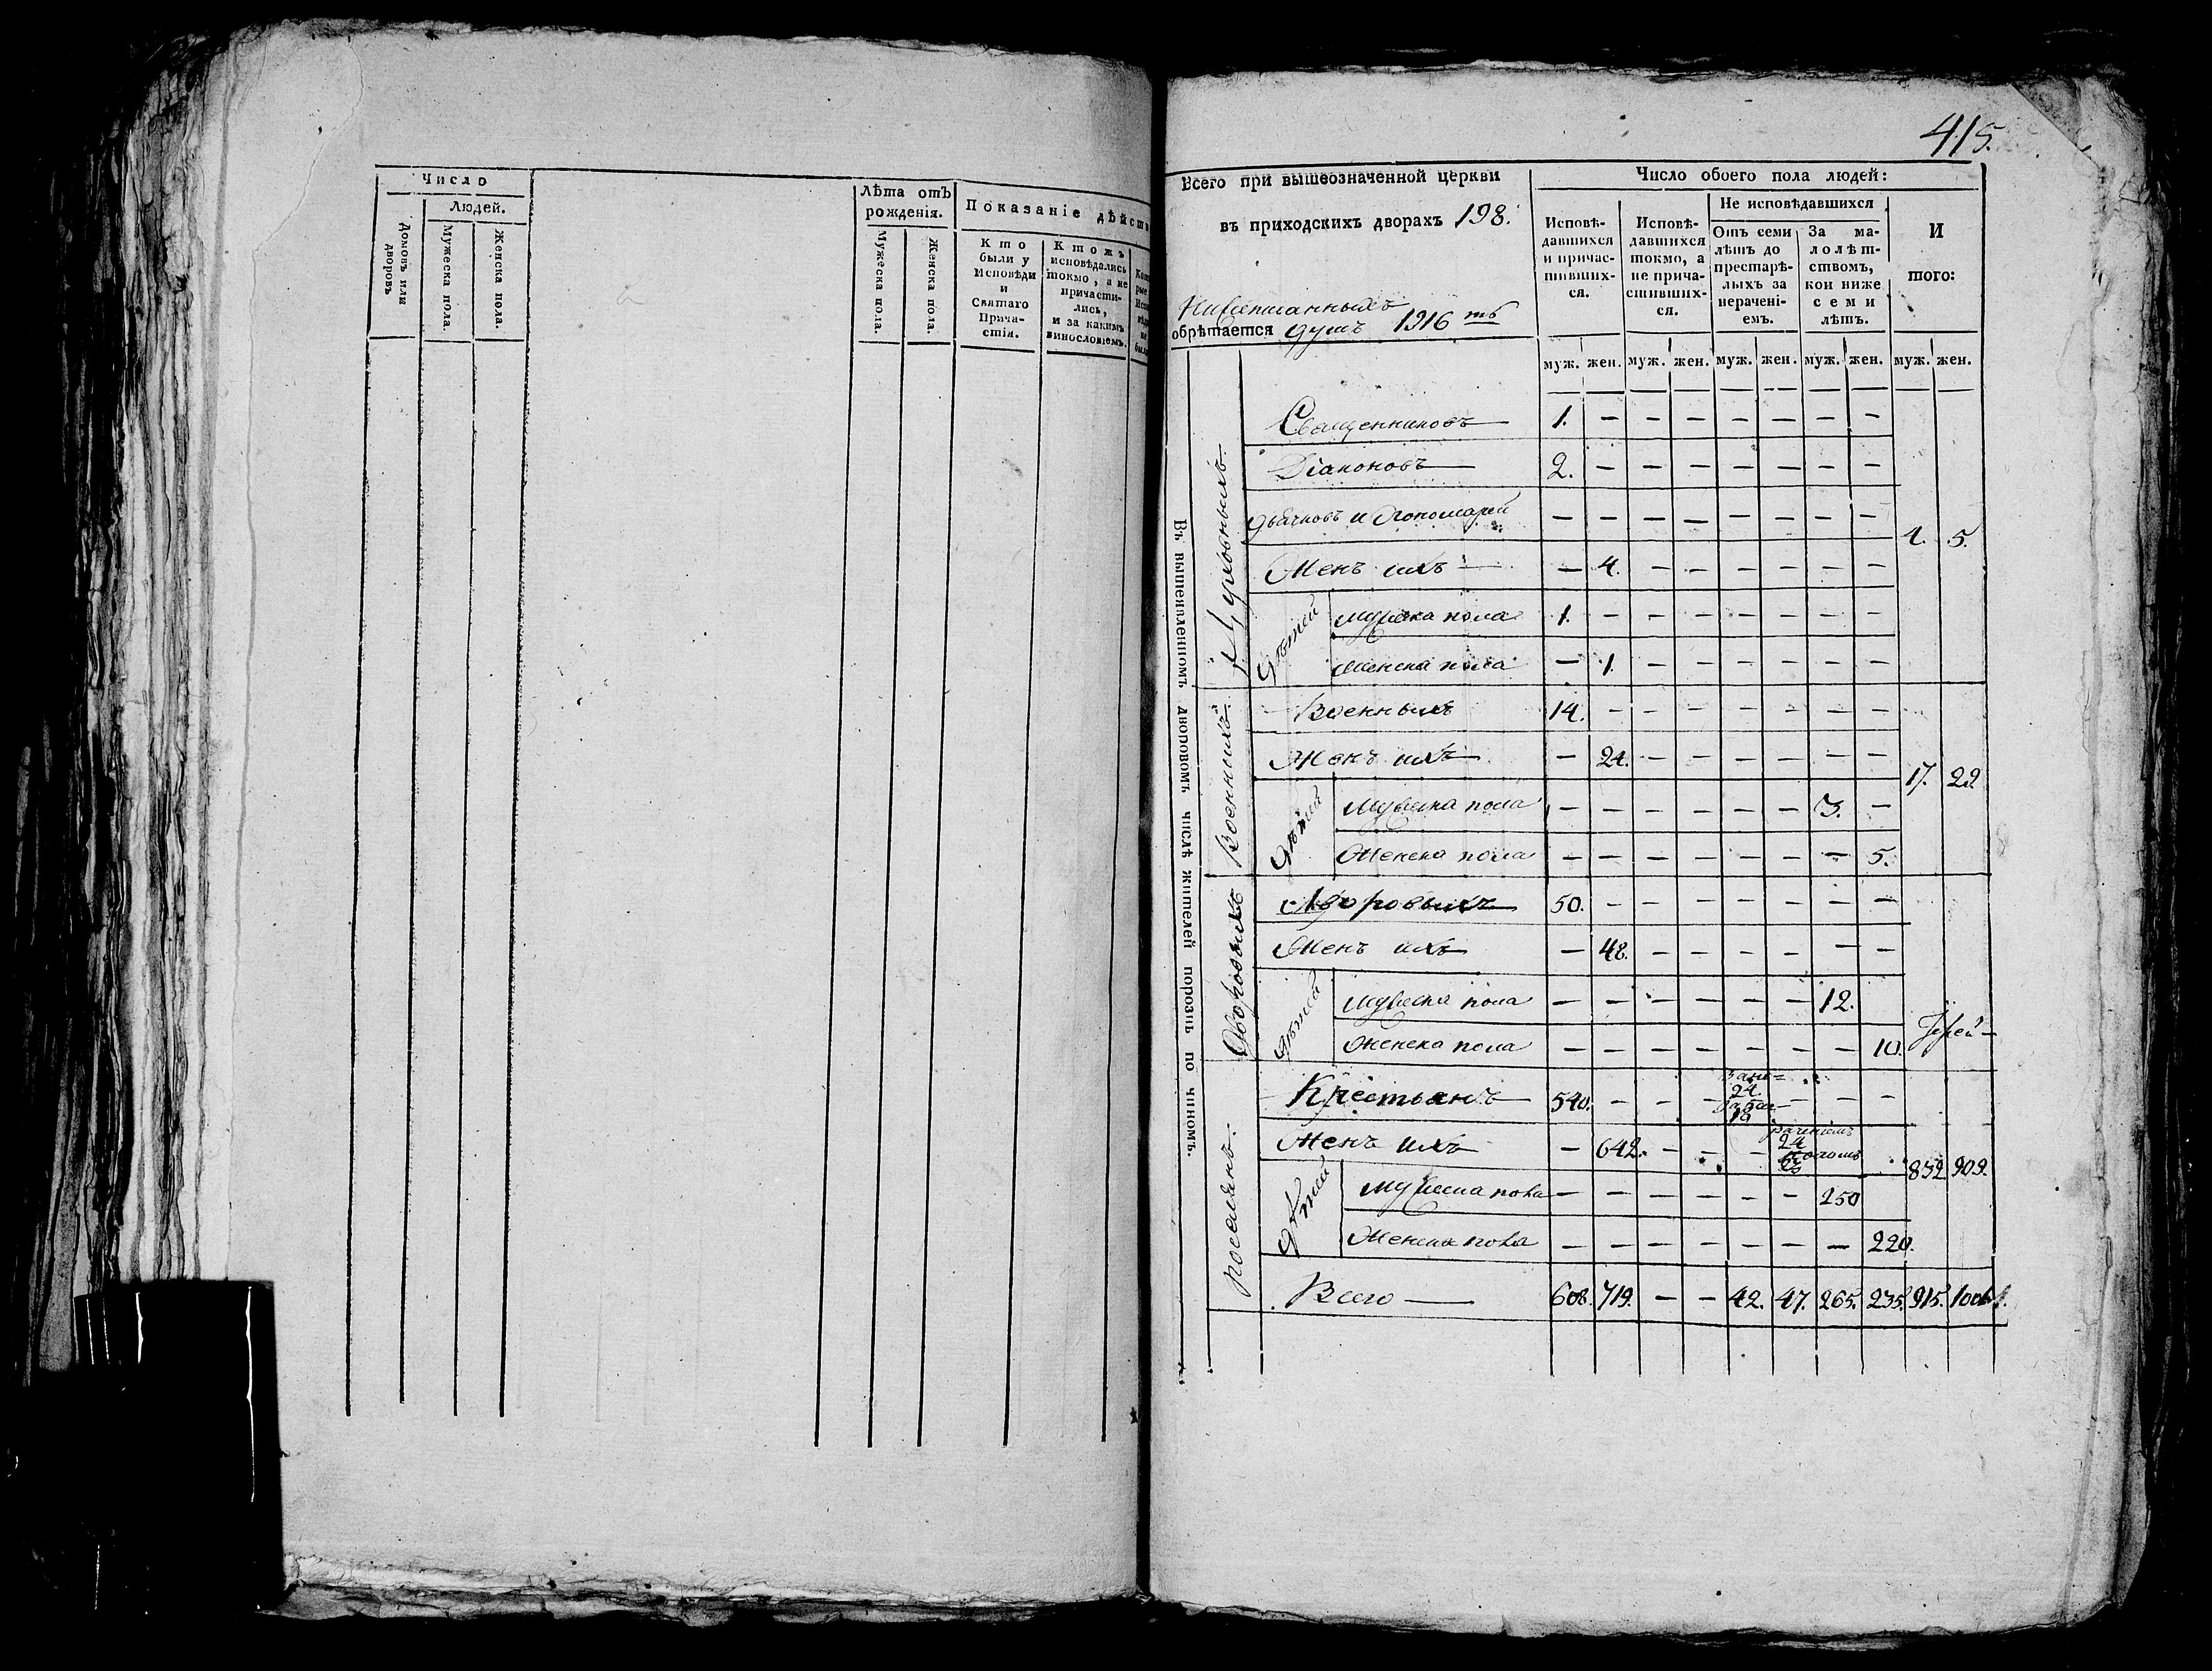 Число
Людей.
Домовъ или дворовъ
Мужеска пола.
Женска пола.
Лѣта отъ рожденія.
Мужеска пола.
Женска пола.
Показаніе дѣйств
Кто были у Исповѣди и Святаго Прича-
стія.
Ктожъ исповѣдались токмо, а не причасти-
лись, и за какимъ винословіемъ.
415.
Всего при вышеозначенной церкви
въ приходскихъ дворахъ 198.
обрѣтается душъ 1916 ть
Число обоего пола людей:
Исповѣ-
давшихся
и причас-
тивших-
ся.
Исповѣ-
давшихся
токмо, а
не прича-
стивших-
ся.
Не исповѣдавшихся
Отъ семи
лѣтъ до
престарѣ-
лыхъ за
нерачені-
емъ.
За ма-
лолѣт-
ствомъ,
кои ниже
семи
лѣтъ.
И
того:
муж. жен. муж. жен. муж. жен. муж. жен. муж. жен.
Въ вышеявленномъ дворовомъ числѣ жителей порознь по чиномъ.
Духовныхъ.
Священниковъ 1. — — — — — — —
Діаконовъ 2. — — — — — — —
Дьячковъ и Пономарей — — — — — — — —
4. 5.
Женъ ихъ — 4. — — — — — —
Дѣтей
Мужеска пола 1. — — — — — — —
Женска пола — 1. — — — — — —
Военныхъ.
Военныхъ 14. — — — — — — —
Женъ ихъ — 24. — — — — — —
17. 29
Дѣтей
Мужеска пола — — — — — — 3. —
Женска пола — — — — — — — 5.
Дворовыхъ
Дворовыхъ 50. — — — — — — —
Женъ ихъ — 48. — — — — —
Дѣтей
Мужеска пола — — — — — — 12.
Женска пола — — — — — — — 10.
Іерей
поселянъ.
Крестьянъ 540. — — — 24 18 — — —
Женъ ихъ — 642. — — — раченіемъ 24 23
832 909.
Дѣтей
Мужеска пола — — — — — — 250
Женска пола — — — — — — — 220.
Всего — 608. 719. — — 42. 47. 265. 235. 915. 1001.